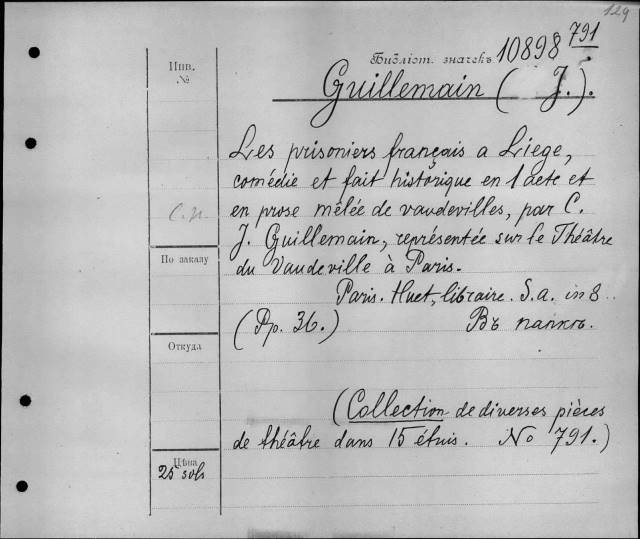 129
Инв.
№
Библіот. значекъ 10898 791
Guillemain ( J.).
Les prisoniers français a Liege,
comédie et fait historique en 1 acte et
en prose mêlée de vaudevilles, par C.
J. Guillemain, représentée sur le Théâtre
du Vaudeville à Paris.
Paris. Huet, libraire. S. a. in 8.
(Pp. 36.) Въ папкѣ.
По заказу
Откуда
(Collection de diverses pièces
de théâtre dans 15 étuis. No 791.)
Цѣна
25 sols